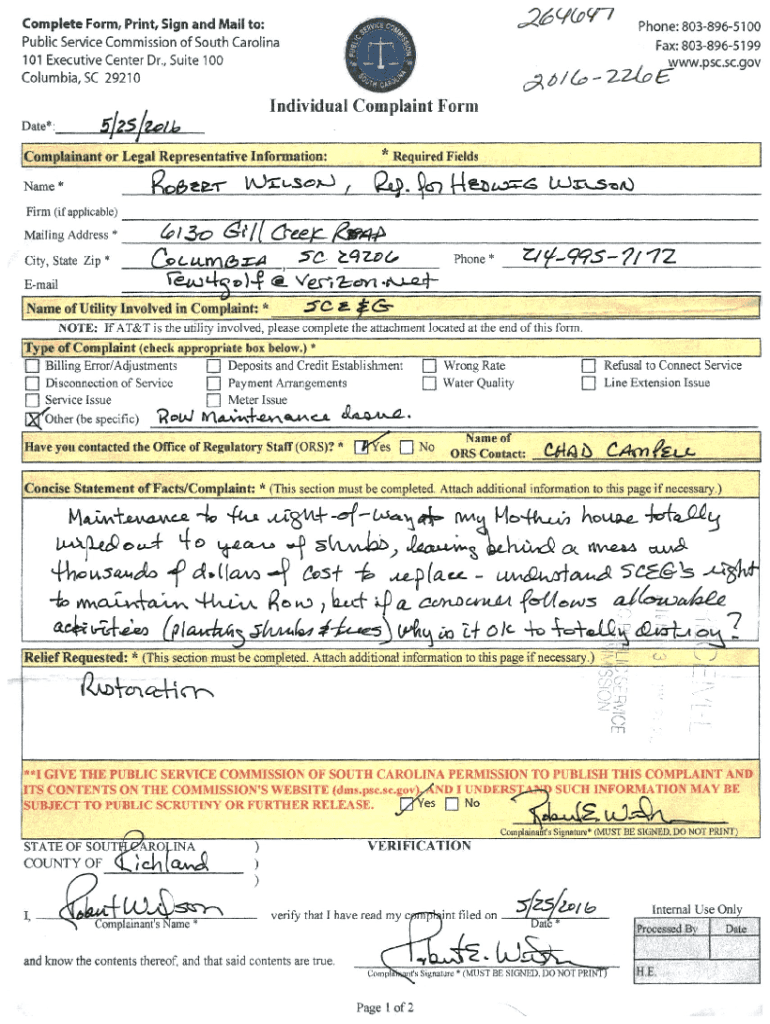 Complete Form, Print, Sign and Mail to:
Public Service Commission of South Carolina
101 Executive Center Dr., Suite 100
Columbia, SC 29210
PUBLIC SERVICE COMMISSION
SOUTH CAROLINA
264647
Phone: 803-896-5100
Fax: 803-896-5199
www.psc.sc.gov
2016-226E
Individual Complaint Form
Date*: 5/25/2016
Complainant or Legal Representative Information: * Required Fields
Name * ROBERT WILSON, Rep. for HEDWIG WILSON
Firm (if applicable)
Mailing Address * 6130 Gill Creek ROAD
City, State Zip * COLUMBIA, SC 29206 Phone * 214-995-7172
E-mail rew4golf@verizon.net
Name of Utility Involved in Complaint: * SCE&G
NOTE: If AT&T is the utility involved, please complete the attachment located at the end of this form.
Type of Complaint (check appropriate box below.) *
Billing Error/Adjustments Deposits and Credit Establishment Wrong Rate Refusal to Connect Service
Disconnection of Service Payment Arrangements Water Quality Line Extension Issue
Service Issue Meter Issue
Other (be specific) ROW Maintenance issue.
Have you contacted the Office of Regulatory Staff (ORS)? * Yes No Name of ORS Contact: CHAD CAMPELL
Concise Statement of Facts/Complaint: * (This section must be completed. Attach additional information to this page if necessary.)
Maintenance to the right-of-way at my Mother's house totally
wiped out 40 years of shrubs, leaving behind a mess and
thousands of dollars of cost to replace - understand SCEG's right
to maintain their Row, but if a consumer follows allowable
activities (planting shrubs & trees) why is it OK to totally distroy?
Relief Requested: * (This section must be completed. Attach additional information to this page if necessary.)
Restoration
PUBLIC SERVICE
COMMISSION
RECEIVED
**I GIVE THE PUBLIC SERVICE COMMISSION OF SOUTH CAROLINA PERMISSION TO PUBLISH THIS COMPLAINT AND
ITS CONTENTS ON THE COMMISSION'S WEBSITE (dms.psc.sc.gov), AND I UNDERSTAND SUCH INFORMATION MAY BE
SUBJECT TO PUBLIC SCRUTINY OR FURTHER RELEASE. Yes No Robert E. Wilson
Complainant's Signature* (MUST BE SIGNED, DO NOT PRINT)
STATE OF SOUTH CAROLINA ) VERIFICATION
COUNTY OF Richland )
)
I, Robert Wilson verify that I have read my complaint filed on 5/25/2016
Complainant's Name * Date *
Internal Use Only
Processed By Date
and know the contents thereof, and that said contents are true. Robert E. Wilson
Complainant's Signature * (MUST BE SIGNED, DO NOT PRINT)
H.E.
Page 1 of 2